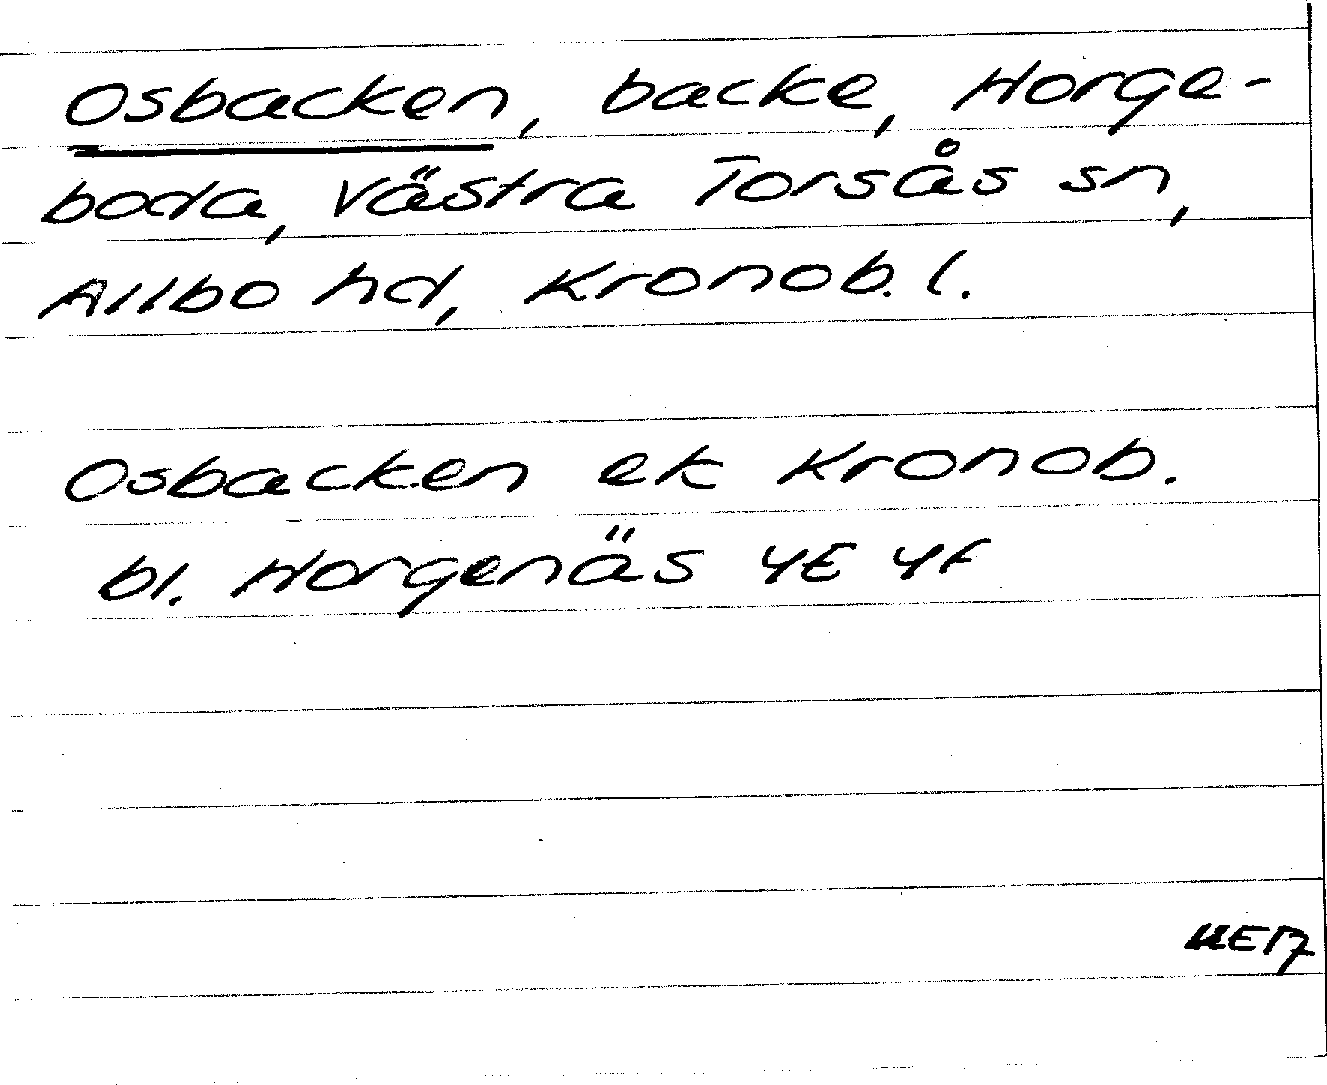 Osbacken, backe, Horge-
boda, Västra Torsås sn,
Allbo hd, Kronob. l.
Osbacken ek Kronob.
bl. Horgenäs 4E 4f